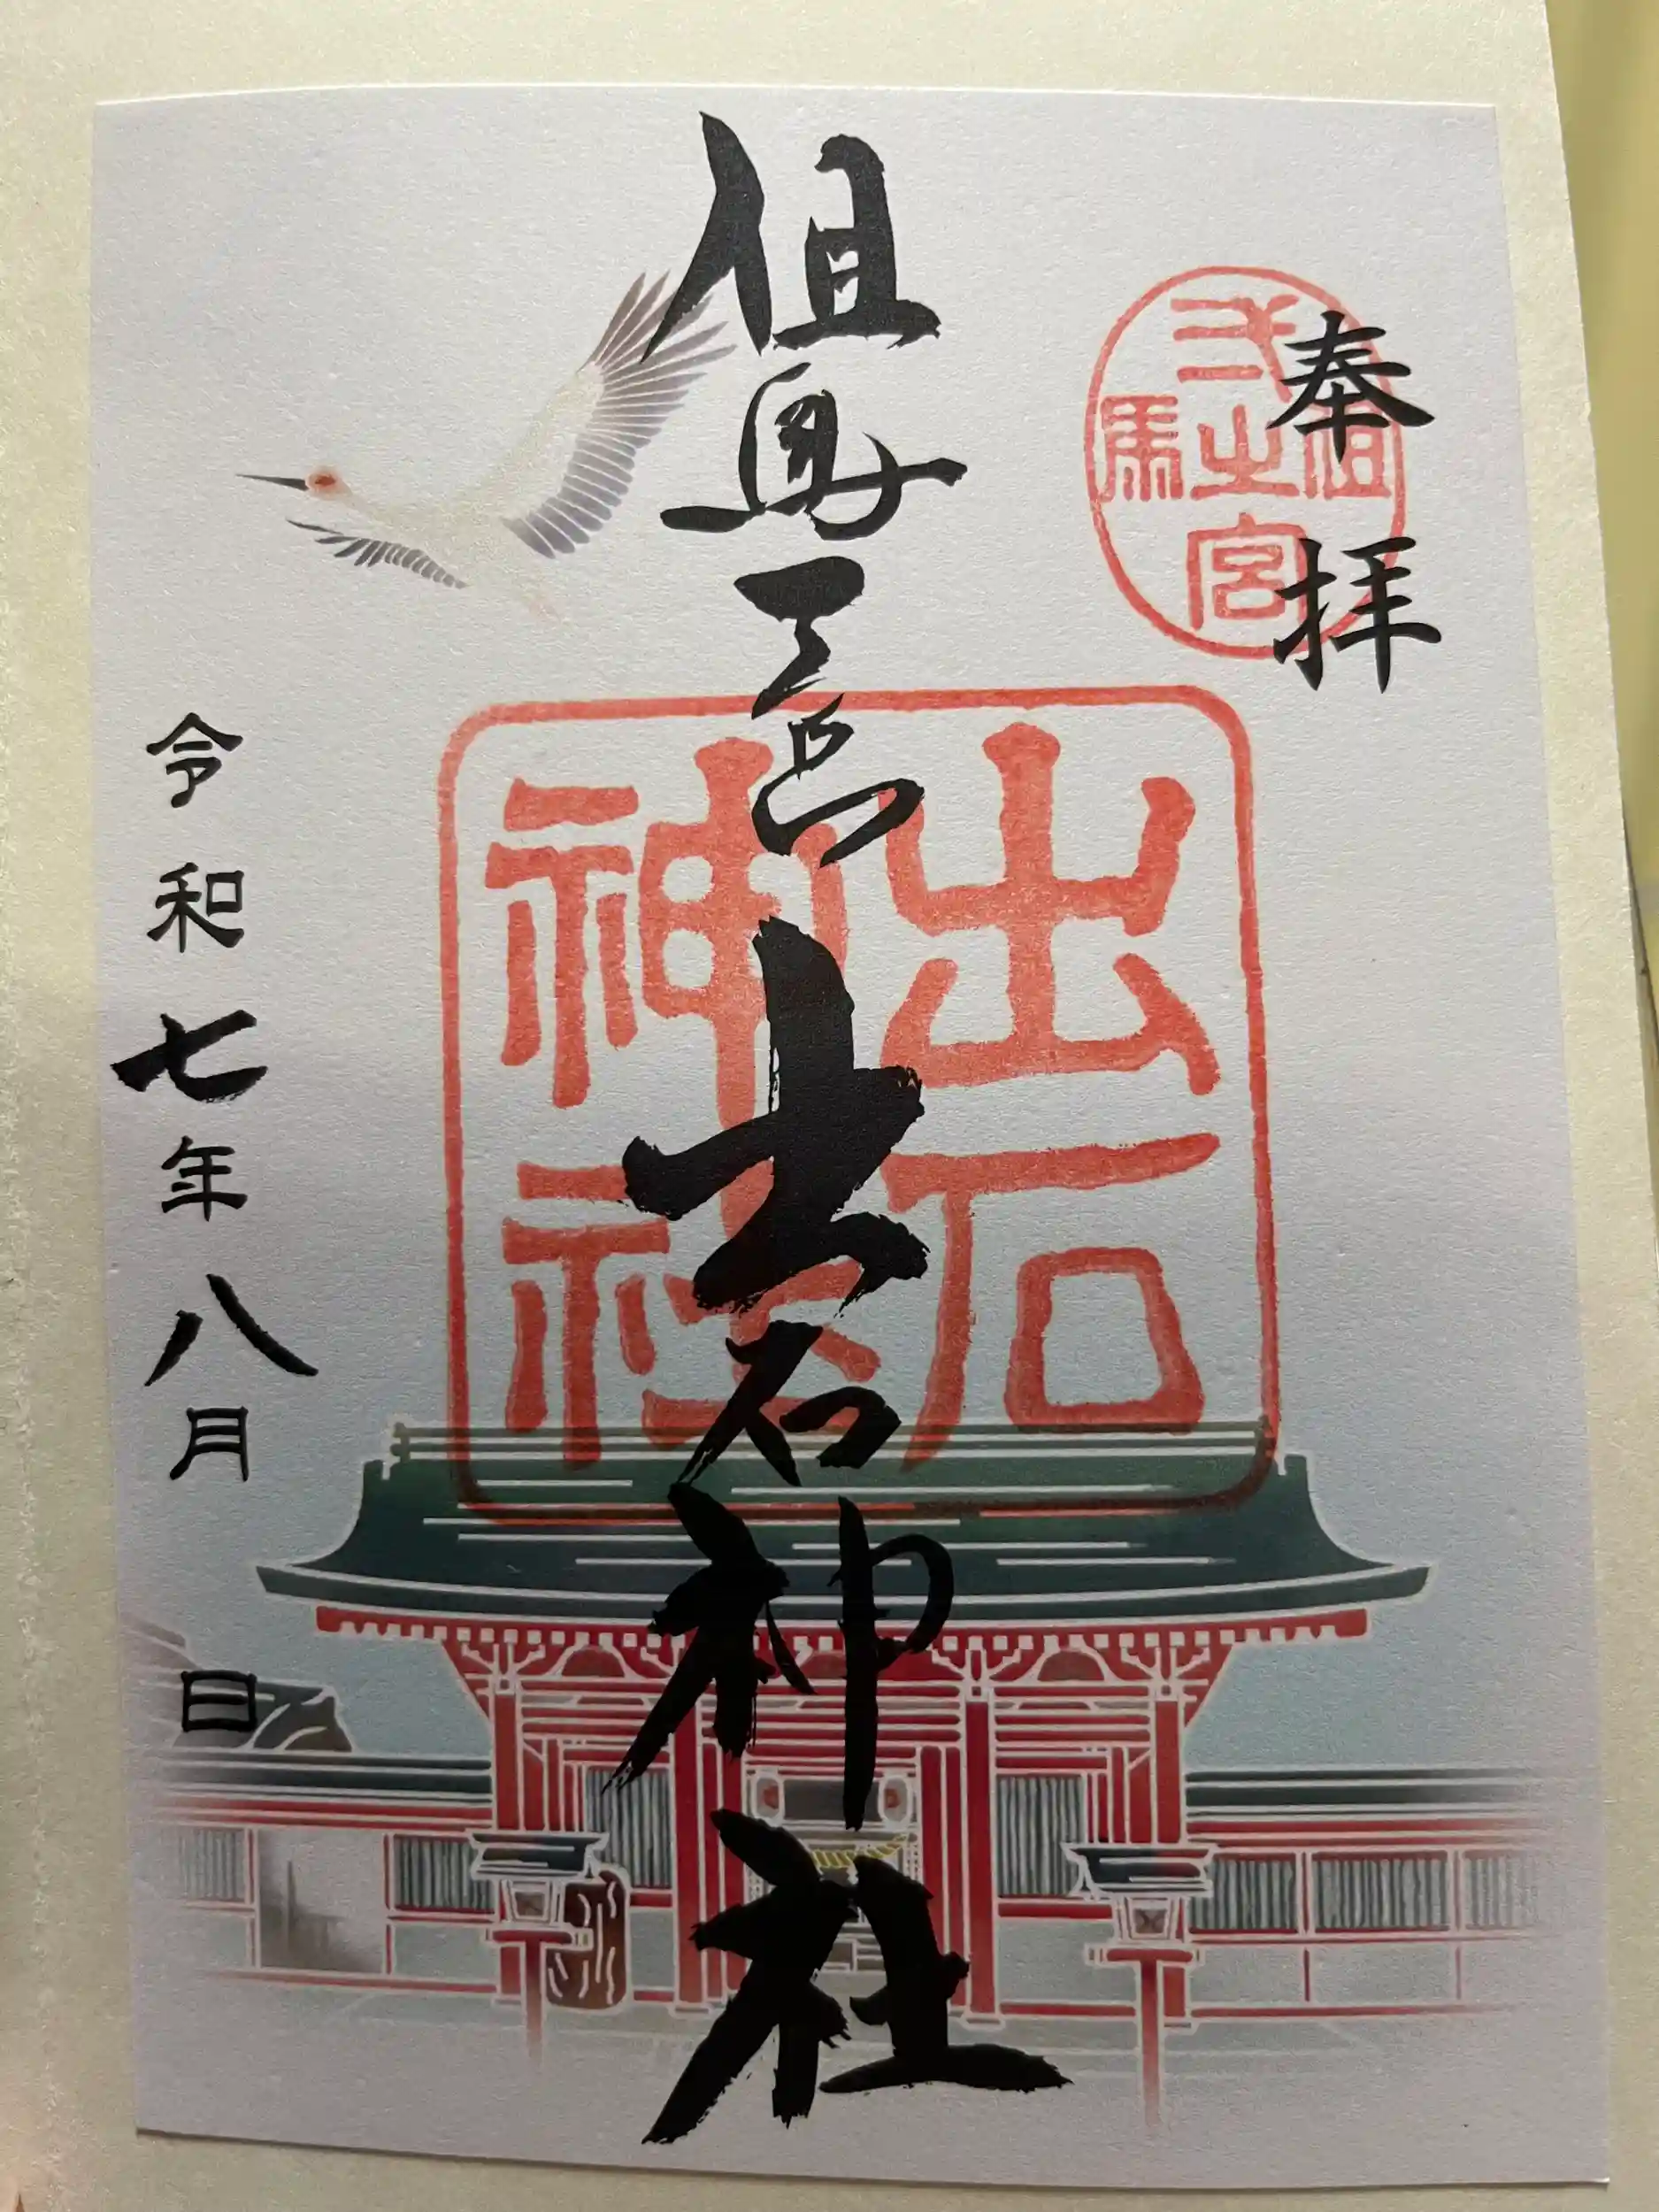 奉拝
但馬弌之宮
但馬一宮出石神社
出石神社
令和七年八月 日